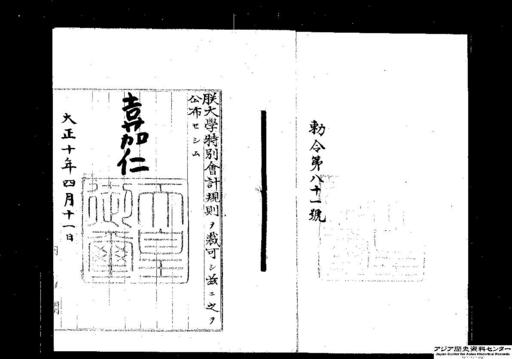 勅令第八十一號
朕大學特別會計規則ヲ裁可シ茲ニ之ヲ
公布セシム
嘉仁
天皇御璽
大正十年四月十一日
アジア歴史資料センター
Japan Center for Asian Historical Records